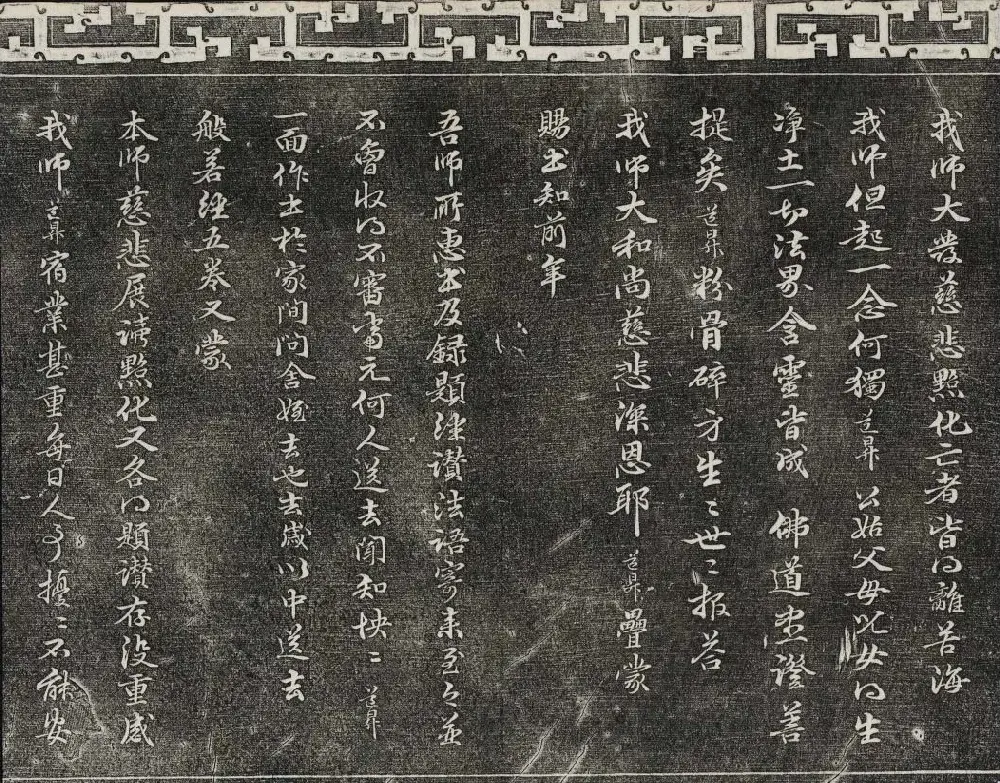 我師大發慈悲點化亡者皆得離苦海
我師但起一念何獨道昇公姑父母兒女得生
淨土一切法界含靈皆成 佛道悉證菩
提矣道昇粉骨碎身生〻世〻报荅
我師大和尚慈悲深恩耶道昇疊蒙
賜书知前年
吾師所惠书及録題經讃法語寄来至今並
不曾收得不審當元何人送去聞知怏〻道昇
一面作书於家間問舍姪去也去歲以中送去
般若經五卷又蒙
本師慈悲展讀點化又各得題讃存没重感
我師道昇宿業甚重每日人事擾〻不能安